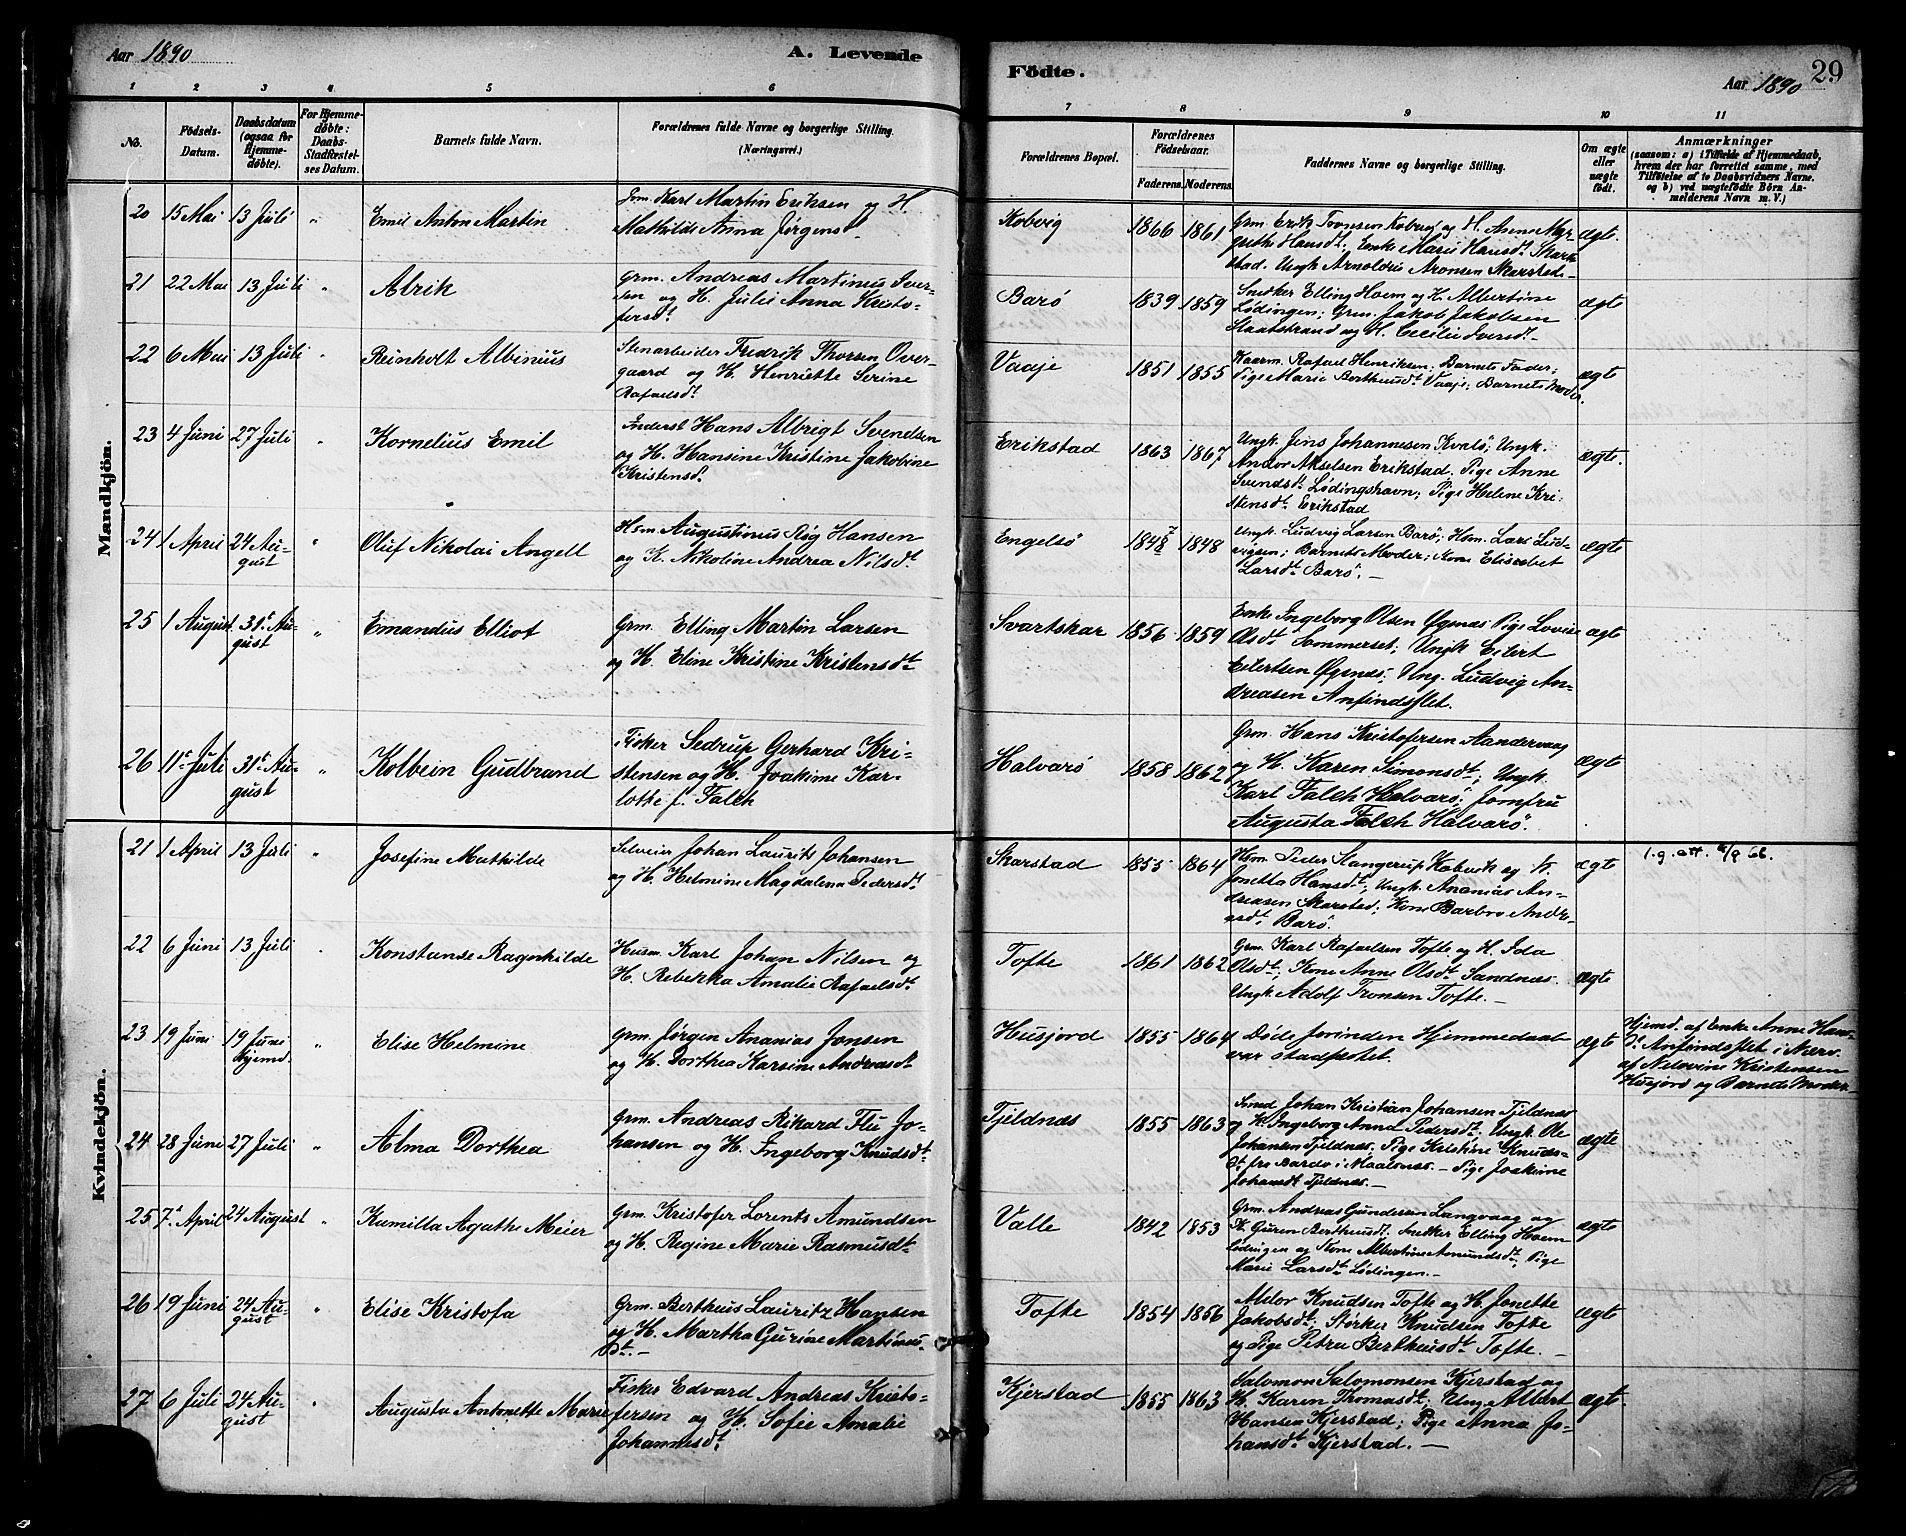 Aar 1890
A. Levende
Födte.
Aar 1890
29
1 2 3 4 5 6 7 8 9 10 11
No.
Födsels-
Datum.
Daabsdatum
(ogsaa for
Hjemme-
döbte).
For Hjemme-
døbte:
Daabs-
Stadfæstel-
ses Datum.
Barnets fulde Navn.
Forældrenes fulde Navne og borgerlige Stilling.
(Næringsvei.)
Forældrenes Bopæl.
Forældrenes
Födselsaar.
Faderens. Moderens.
Faddernes Navne og borgerlige Stilling.
Om ægte
eller
uægte
födt.
Anmærkninger
(saasom: a) i Tilfælde af Hjemmedaab,
hvem der har forrettet samme, med
Tilföielse af to Daabsvidners Navne.
og b) ved uægtefödte Börn An-
melderens Navn m. V.)
Mandkjön.
20 15 Mai 13 Juli " Emil Anton Martin
Karl Martin Eriksen og H.
Mathilde Anna Jørgensd.
Kobvig 1866 1861
Grm. Erik Tronsen Kobvig og H. Anne Mar-
grethe Hansdt; Enke Marie Hansdt Skar-
stad. Ungk Arnoldus Aronsen Skarstad.-
ægte.
21 22 Mai 13 Juli " Alrik
Grm. Andreas Martinus Iver-
sen og H. Julie Anna Kristo-
fersdt
Barö 1839 1859
Snedker Elling Hoem og H. Albertine
Lødingen; Grm. Jakob Jakobsen
Staatstrand og H. Cecilie Iversdt.-
ægte
22 6 Mai 13 Juli " Reinholt Albinius
Stenarbeider Fredrik Thorsen Over-
gaard og H. Henriette Serine
Rafaelsdt
Vaaje 1851 1855
Kaarm. Rafael Henriksen; Barnets Fader;
Pige Marie Bertheusdt Vaaje; Barnets Moder.
ægte
23 4 Juni 27 Juli " Kornelius Emil
Inderst Hans Albrigt Svendsen
og H. Hansine Kristine Jakobine
Kristensdt
Erikstad 1863 1867
Ungk. Jens Johannesen Kvalø; Ungk.
Andor Akselsen Erikstad. Pige Anne
Svendsdt Lødingshavn; Pige Helene Kri-
stensdt Erikstad
ægte.
24 1 April 24 Au-
gust " Oluf Nikolai Angell
Hsm Augustinus Røg Hansen
og H. Nikoline Andrea Nilsdt
Engelsö 1848 7 1848
Ungk. Ludvig Larsen Barö; Hsm. Lars Lud-
vigsen; Barnets Moder; Kone Elisabet
Larsdt Barö.-
ægte
25 1 August 31 Au-
gust " Emandus Elliot
Grm. Elling Martin Larsen
og H. Eline Kristine Kristensdt
Svartskar 1856 1859
Enke Ingeborg Olsen Øgnes Pige Lovise
Olsdt Sommerset; Ungk Eilert
Eilertsen Øgsnes; Ung. Ludvig An-
dreasen Anfindslet.
ægte
26 11 Juli 31 Au-
gust " Kolbein Gudbrand
Fisker Sedrup Gerhard Kri-
stensen og H. Joakime Kar-
lotte f. Falch
Halvarö 1858 1862
Grm. Hans Kristofersen Aandervaag
og H. Karen Simonsdt; Ungk.
Karl Falch Halvarö; Jomfru
Augusta Falch Halvarö.
ægte
Kvindekjön.
21 1 April 13 Juli " Josefine Mathilde
Selveier Johan Laurits Johansen
og H. Helmine Magdalena Pedersdt
Skarstad 1855 1864
Hsm. Peder Hangerup Kobvik og H.
Jonetta Hansdt; Ungk. Ananias An-
dreasen Skarstad; Kone Barbro Andr-
easdt Barö.
ægte l.g. att. /9 66.
22 6 Juni 13 Juli " Konstanse Ragnhilde
Husm. Karl Johan Nilsen og
H. Rebekka Amalie Rafaelsdt
Tofte 1861 1862
Grm. Karl Rafaelsen Tofte og H. Ida
Olsdt; Kone Anne Olsdt Sandnæs
Ungk. Adolf Tronsen Tofte.-
ægte
23 19 Juni 19 Juni
Hjemd. " Elise Helmine
Grm. Jørgen Ananias Jonsen
og H. Dorthea Karsine Andreasdt
Husjord 1855 1864
Døde forinden Hjemmedaab
var stadfæstet.
ægte
Hjemd. af Enke Anne Hans-
dt. Anfindslet i Nærv.
af Nilovine Kristensen
Husjord og Barnets Moder
24 28 Juni 27 Juli " Alma Dorthea
Grm. Andreas Rikard Flu Jo-
hansen og H. Ingeborg Knudsdt
Tjeldnæs 1855 1863
Smed Johan Kristian Johansen Tjeldnæs
og H. Ingeborg Anna Pedersdt; Ungk. Ole
Johansen Tjeldnæs; Pige Kristine Knuds-
dt fra Bardo i Maalsnes.- Pige Joakime
Johansdt Tjeldnæs.-
ægte
25 7 April 24 August " Kamilla Agathe Meier
Grm. Kristofer Lorents Amundsen
og H. Regine Marie Rasmusdt
Valle 1842 1853
Grm. Andreas Gundersen Langvaag og
H. Guren Bertheusdt. Snekker Elling Hoem
Lødingen og Kone Albertine Amundsdt; Pige
Marie Larsdt Lödingen.-
ægte
26 19 Juni 24 Au-
gust " Elise Kristofa
Grm. Bertheus Lauritz Hansen
og H. Martha Gurine Martinus-
dt.-
Tofte 1854 1856
Aldor Knudsen Tofte og H. Jonette
Jakobsdt; Størker Knudsen Tofte
og Pige Petra Bertheusdt Tofte.-
ægte
27 6 Juli 24 Au-
gust " Augusta Antonette Marie
Fisker Edvard Andreas Kristo-
fersen og H. Sofie Amalie
Johannesdt
Kjerstad 1855 1863
Salomon Salomonsen Kjerstad og
H. Karen Thomasdt; Ung Albert
Hansen Kjerstad; Pige Anna Jo-
hansdt Kjerstad.-
ægte.